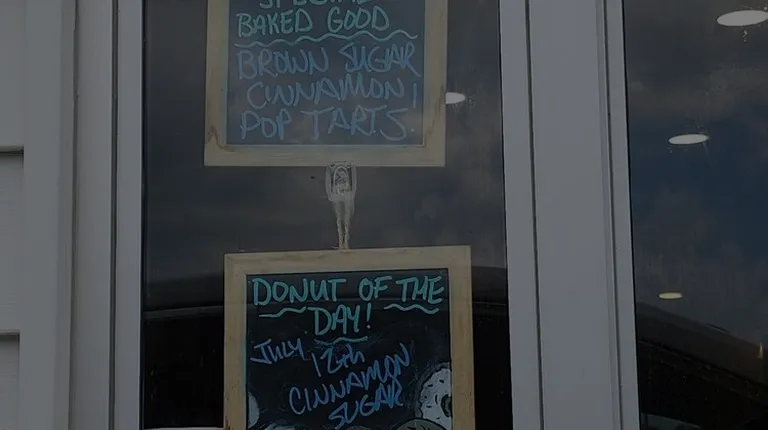 SPECIAL
BAKED GOOD
BROWN SUGAR
CINNAMON
POP TARTS
DONUT OF THE
DAY!
JULY 12th
CINNAMON
SUGAR